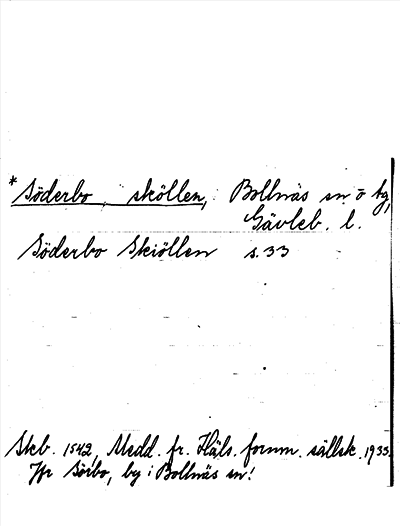 *Söderbo, sköllen, Bollnäs sn o tg,
Gävleb. l.
Söderbo Skiöllen s. 33
Skb. 1542, Medd. fr. Häls. fornm. sällsk. 1933.
Jfr Sörbo, by i Bollnäs sn!